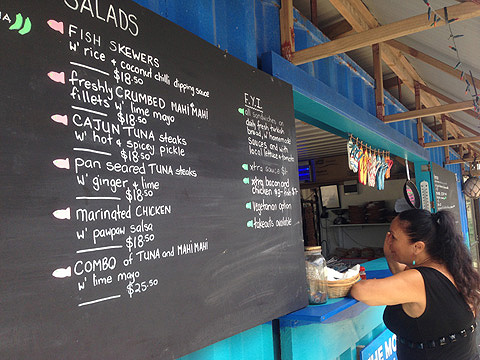 SALADS
FISH SKEWERS
w' rice & coconut chilli dipping sauce
$18.50
freshly CRUMBED MAHI MAHI
fillets w' lime mayo
$18.50
CAJUN TUNA steaks
w' hot & spicy pickle
$18.50
pan seared TUNA steaks
w' ginger & lime
$18.50
marinated CHICKEN
w' pawpaw salsa
$18.50
COMBO of TUNA and MAHI MAHI
w' lime mayo
$25.50
F.Y.I.
all sandwiches on
daily fresh turkish
bread, w' homemade
sauces and with
local lettuce & tomato
xtra sauce $1
xtra bacon and
chicken $3 - fish $7
vegetarian option
takeouts available
THE MO